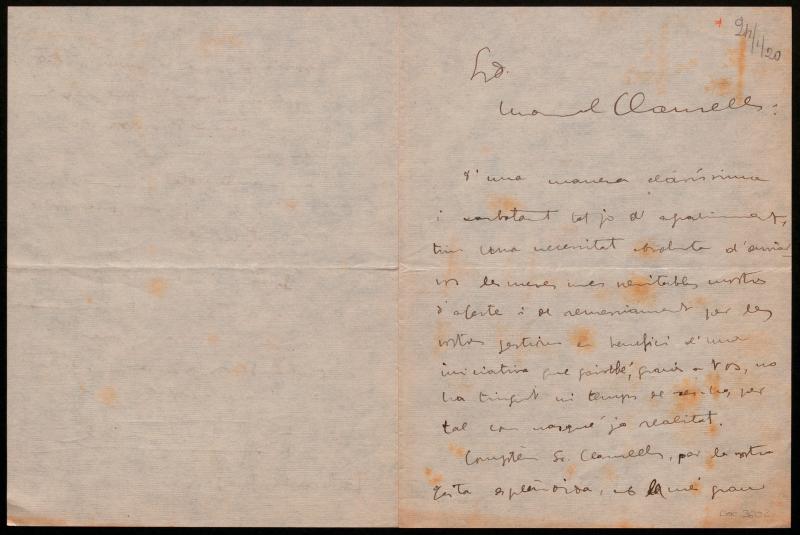 24/1/20
Sr. D.
Manuel Clausells:
D'una manera claríssima
i exaltant tot jo d'apassionament,
tinc una necessitat absoluta d'enviar-
vos les meves més veritables mostres
d'afecte i de remerciament per les
vostres gestions en benefici d'una
iniciativa que gairebé, gracies a Vos, no
ha tingut ni temps de ser-ho, per
tal com nasqué ja realitat.
Comptèu Sr. Clausells, per la vostra
gesta esplèndida, amb la mes gran